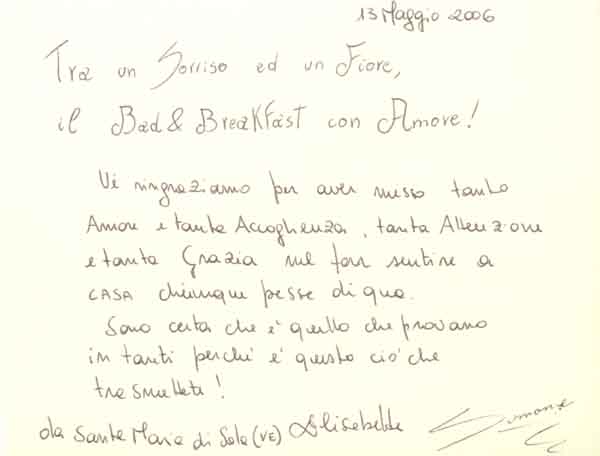 13 Maggio 2006
Tra un Sorriso ed un Fiore,
il Bad & Breakfast con Amore!
Vi ringraziamo per aver messo tanto
Amore e tanta Accoglienza, tanta Attenzione
e tanta Grazia nel far sentire a
CASA chiunque passe di qua.
Sono certa che è quello che provano
in tanti perché è questo ciò che
trasmettete!
da Santa Maria di Sala (VE) Elisabetta
Simone